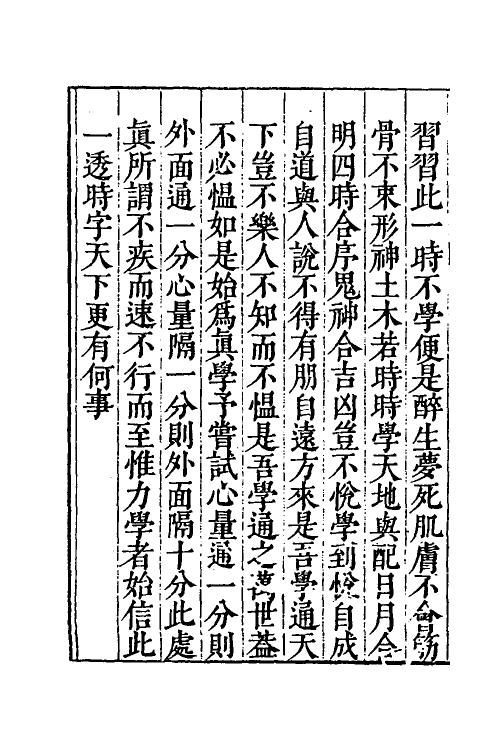 習習此一時不學便是醉生夢死肌膚不會筋
骨不束形神土木若時時學天地與配日月合
明四時合序鬼神合吉凶豈不悅學到悅自成
自道與人說不得有朋自遠方來是吾學通天
下豈不樂人不知而不慍是吾學通之萬世葢
不必慍如是始爲眞學予嘗試心量通一分則
外面通一分心量隔一分則外面隔十分此處
眞所謂不疾而速不行而至惟力學者始信此
一透時字天下更有何事